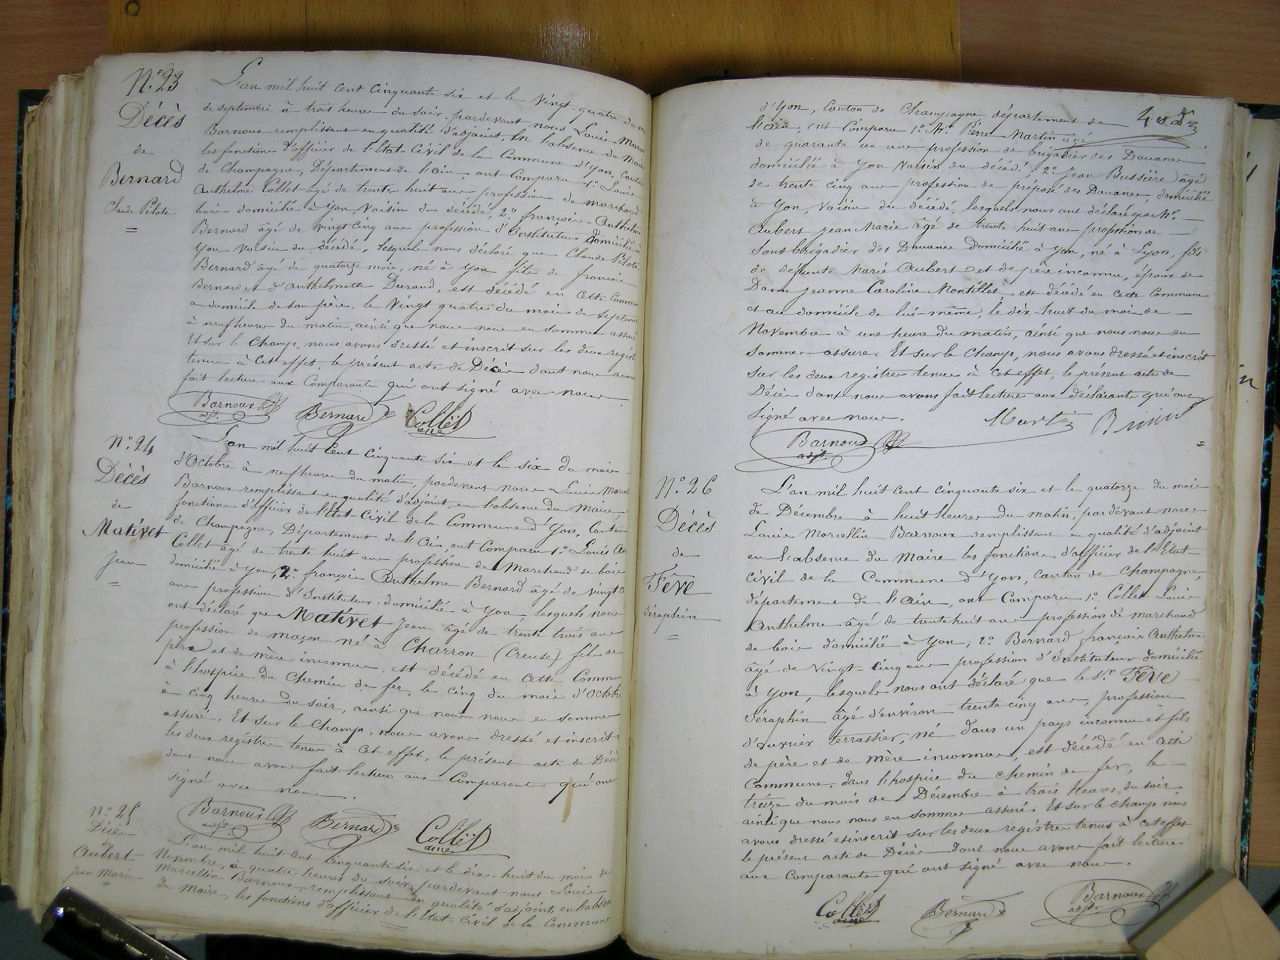 N° 23
Décès
de
Bernard
Claude Pilote
L'an mil huit cent cinquante six et le vingt quatre du mois
de septembre à trois heures du soir, pardevant nous Louis Marcellin
Barnoux remplissant en qualité d'adjoint, en l'absence du Maire
les fonctions d'officier de l'Etat Civil de la Commune d'Yon, Canton
de Champagne, Département de l'Ain, ont comparu 1° Louis
Anthelme Collet âgé de trente huit ans profession de marchand de
bois domicilié à Yon Voisin du décédé, 2° françois Anthelme
Bernard âgé de vingt cinq ans profession d'Instituteur domicilié à
Yon voisin du décédé, lesquels nous déclaré que Claude Pilote
Bernard âgé de quatorze mois, né à Yon fils de francois
Bernard et d'Anthelmette Durand, est décédé en cette Commune
a domicile de son père, le vingt quatre du mois de septembre
à neuf heures du matin, ainsi que nous nous en sommes assuré
Et sur le Champ, nous avons dressé et inscrit sur les deux registres
tenus à cet effet, le présent acte de Décès dont nous avons
fait lecture aux Comparants qui ont signé avec nous
Barnoux adjt Bernard Collet ainé
N° 24
Décès
de
Mativet
Jean
L'an mil huit cent cinquante six et le six du mois
d'Octobre à neuf heures du matin, pardevant nous Louis Marcel
Barnoux remplissant en qualité d'adjoint, en l'absence du Maire
fonctions d'officier de l'Etat Civil de la Commune d'Yon, Canton
de Champagne, Département de l'Ain, ont Comparu 1° Louis An
Collet âgé de trente huit ans profession de Marchand de bois
domicilié à Yon, 2° françois Anthelme Bernard âgé de vingt
ans profession d'Instituteur domicilié à Yon, lesquels nous
ont déclaré que Mativet Jean âgé de trente trois ans
profession de maçon né à Charron (Creuse) fils de
père et de mère inconnus, est décédé en cette Commune
à l'hospice du Chemin de fer, le cinq du mois d'Octobre
à cinq heures du soir, ainsi que nous nous en sommes
assuré, Et sur le Champ, nous avons dressé et inscrit
les deux registres tenus à cet effet, le présent acte de Décès
dont nous avons fait lecture aux Comparants qui ont
signé avec nous.
Barnoux adjt Bernard Collet ainé
N° 25
Décès
Aubert
jean Marie
L'an mil huit cent cinquante six et le dix huit du mois de
Novembre, à quatre heures du soir, pardevant nous Louis
Marcellin Barnoux remplissant en qualité d'adjoint, en l'absence
du Maire, les fonctions d'officier de l'Etat Civil de la Commune
d'Yon, Canton de Champagne département de
l'Ain, ont Comparu 1° Mr Pierre Martin âgé
de quarante un ans profession de brigadier des Douanes
domicilié à Yon Voisin du décédé 2° Jean Bussière âgé
de trente cinq ans profession de préposé des Douanes, domicilié
à Yon, voisin du décédé, lesquels nous ont déclaré que Mr
Aubert jean Marie âgé de trente huit ans profession de
sous brigadier des Douanes domicilié à Yon, né à Lyon, fils
de défunte Marie Aubert et de père inconnu, époux de
Dame Jeanne Caroline Montillet est décédé en cette Commune
et au domicile de lui-même, le dix huit du mois de
Novembre à une heure du matin, ainsi que nous nous en
sommes assuré Et sur le champ, nous avons dressé et inscrit
sur les deux registres tenus à cet effet, le présent acte de
Décès dont nous avons fait lecture aux déclarants qui ont
signé avec nous. Martin
Barnoux adjt
N° 26
Décès
de
Fève
Séraphin
L'an mil huit cent cinquante six et le quatorze du mois
de Décembre à huit heures du matin, pardevant nous
Louis Marcellin Barnoux remplissant en qualité d'adjoint
en l'absence du Maire les fonctions d'officier de l'Etat-
Civil de la Commune d'Yon, canton de Champagne,
département de l'Ain, ont Comparu 1° Collet Louis
Anthelme âgé de trente huit ans profession de marchand
de bois domicilié à Yon, 2° Bernard françois Anthelme
âgé de Vingt-cinq ans profession d'Instituteur domicilié
à Yon, lesquels nous ont déclaré que le Sr Fève
Séraphin âgé d'environ trente cinq ans, profession
d'ouvrier terrassier, né dans un pays inconnu et fils
de père et de mère inconnus, est décédé en cette
Commune, dans l'hospice du chemin de fer, le
treize du mois de Décembre à trois heures du soir
ainsi que nous nous en sommes assuré. Et sur le champ nous
avons dressé et inscrit sur les deux registres tenus à cet effet
le présent acte de Décès dont nous avons fait lecture
aux Comparants qui ont signé avec nous.
Collet ainé Bernard Barnoux adjt